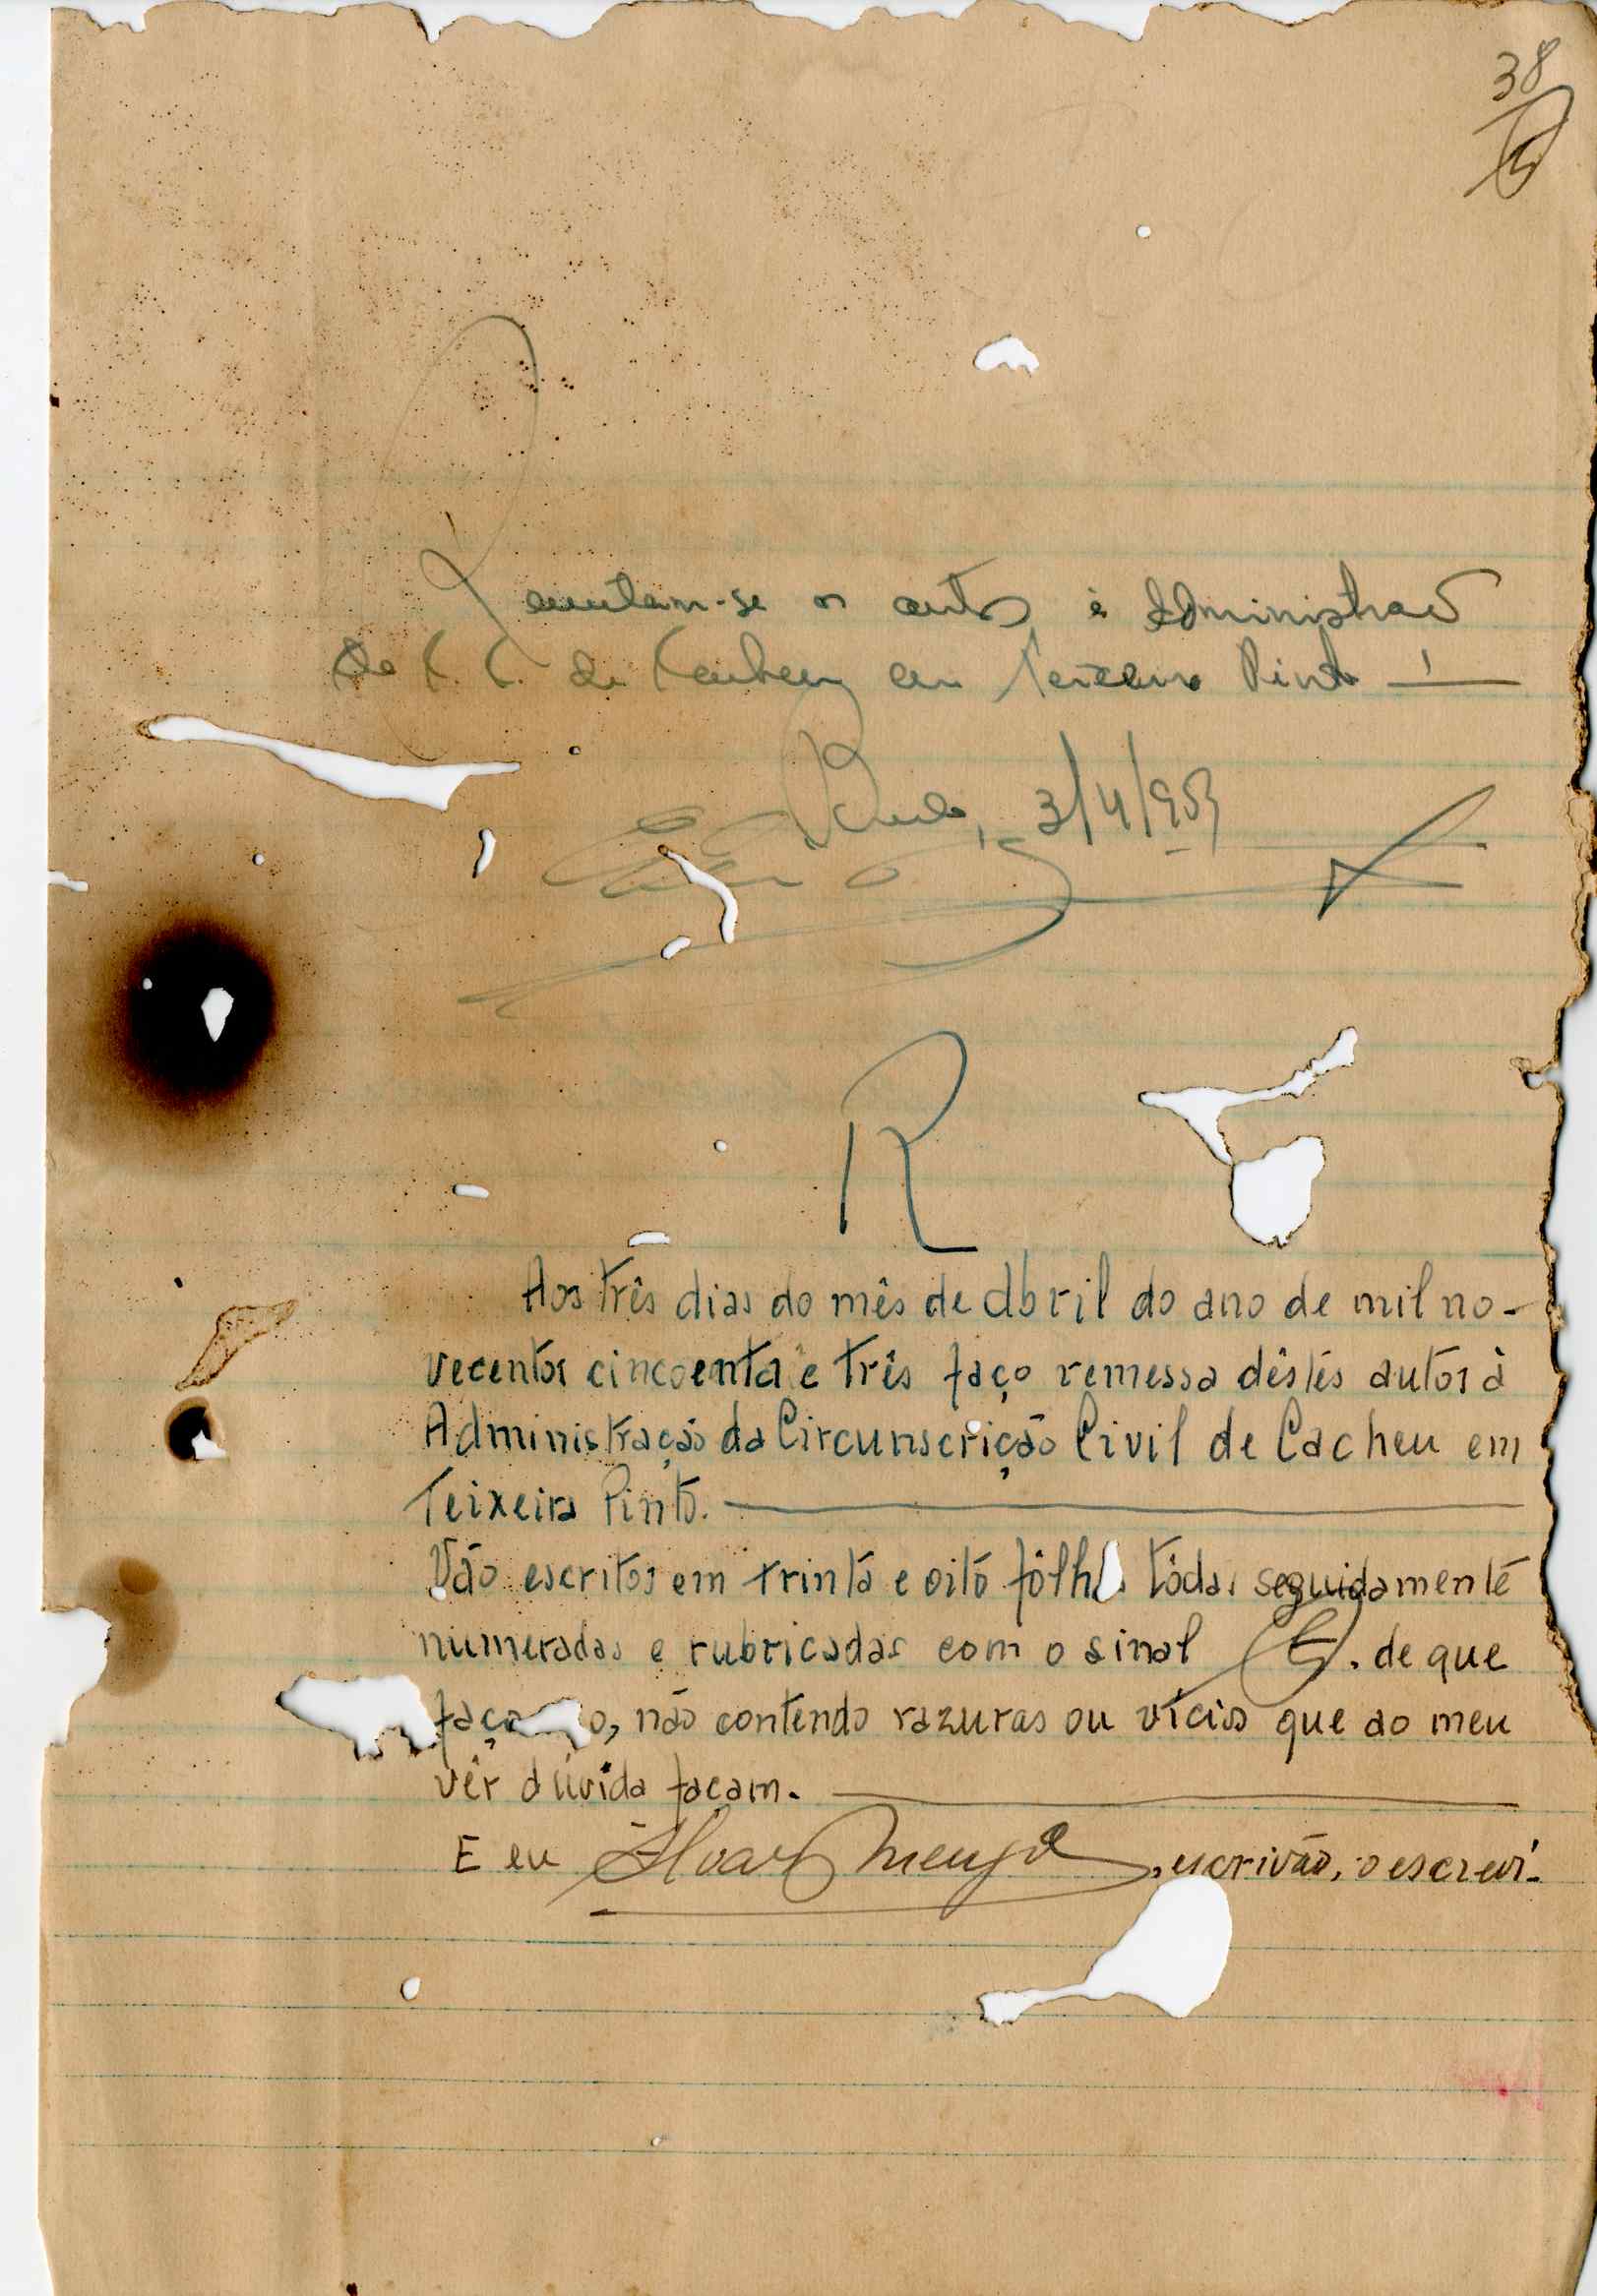 38
Remetam-se os autos à Administração
da C. C. de Cacheu em Teixeira Pinto —
3/4/953
R
Aos três dias do mês de Abril do ano de mil no-
vecentos cincoenta e três faço remessa dêstes autos à
Administração da Circunscrição Civil de Cacheu em
Teixeira Pinto.
Vão escritos em trinta e oito fôlh tôdas seguidamente
numeradas e rubricadas com o sinal . de que
faço o, não contendo razuras ou vícios que ao meu
vêr dúvida façam.
E eu Alvaro , escrivão, o escreví.